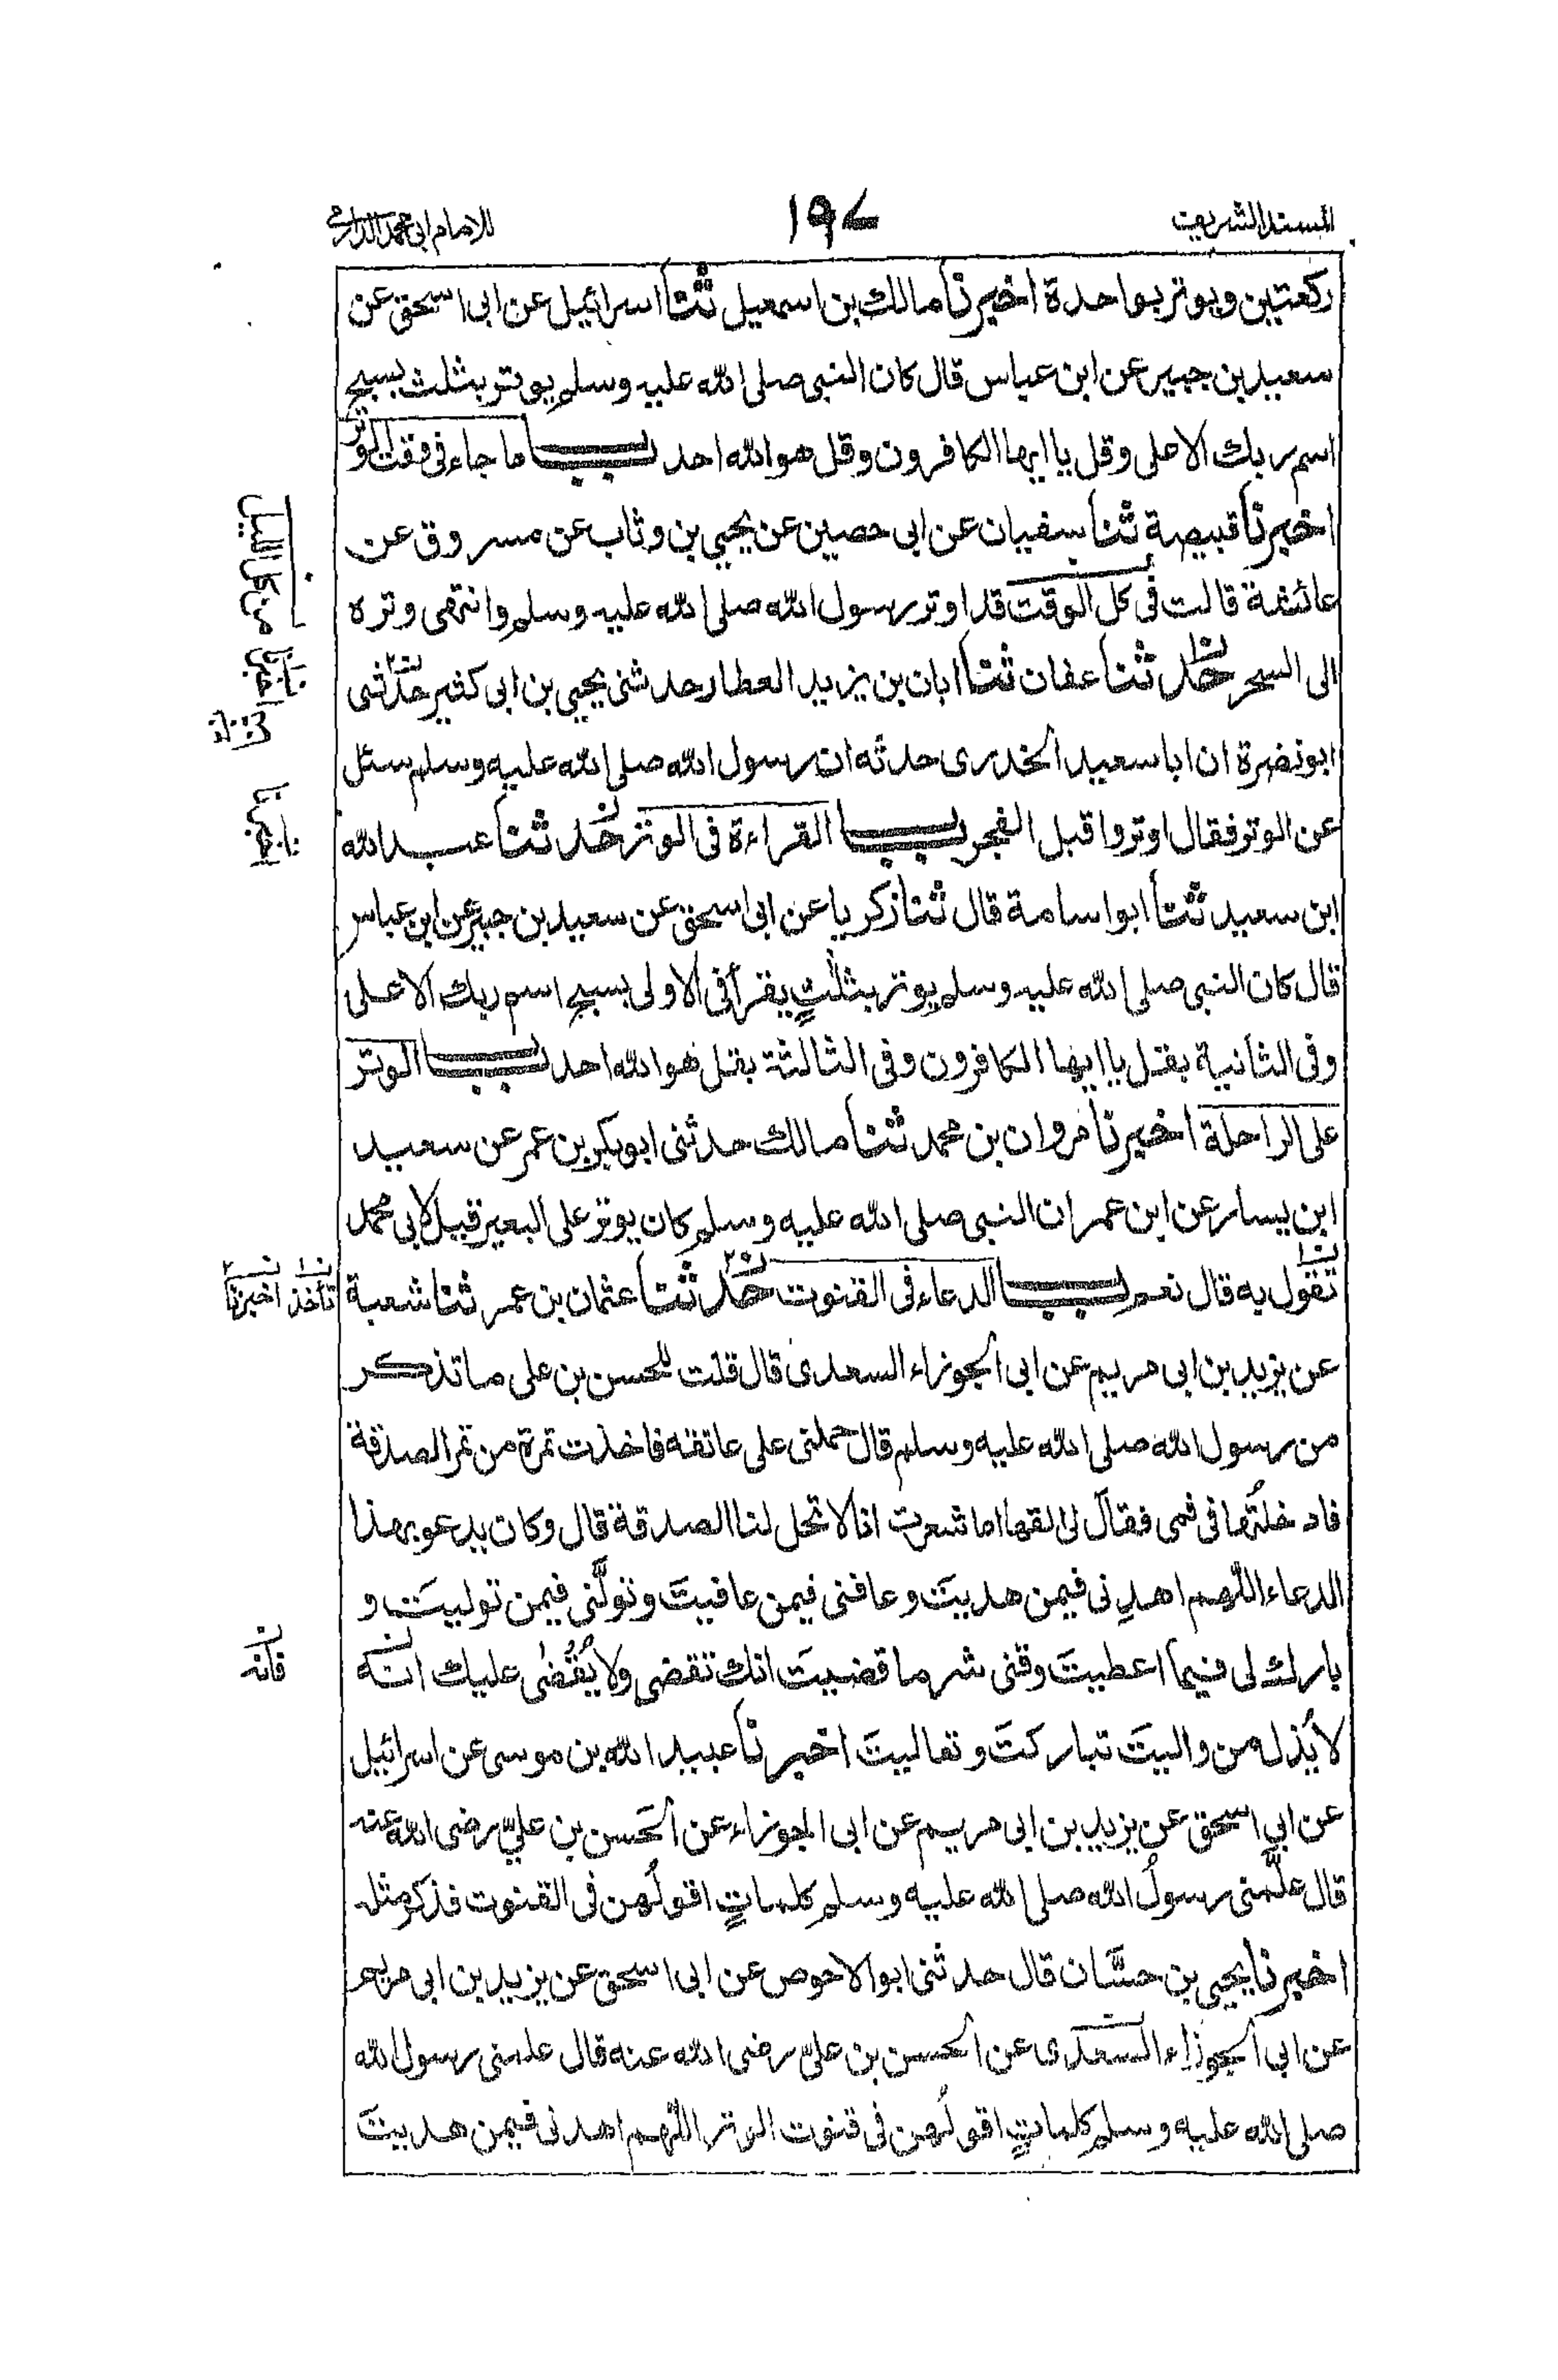 المسند الشريف
١٩٧
للامام ابی محمد الدارمی
ركعتين ويوتر بواحدة اخبرنا مالك بن اسمعيل ثنا اسرائيل عن ابی اسحق عن
سعيد بن جبير عن ابن عباس قال كان النبی صلی الله عليه وسلم يوتر بثلث بسبح
اسم ربك الاعلی وقل يا ايها الكافرون وقل هو الله احد باب ما جاء فی وقت الوتر
اخبرنا قبيصة ثنا سفيان عن ابی حصين عن يحيی بن وثاب عن مسروق عن
عائشة قالت فی كل الوقت قد اوتر رسول الله صلی الله عليه وسلم وانتهی وتره
الی السحر حدثنا عفان ثنا ابان بن يزيد العطار حدثنی يحيی بن ابی كثير حدثنی
ابو نضرة ان ابا سعيد الخدری حدثه ان رسول الله صلی الله عليه وسلم سئل
عن الوتر فقال اوتروا قبل الفجر باب القراءة فی الوتر حدثنا عبد الله
ابن سعيد ثنا ابو اسامة قال ثنا زكريا عن ابی اسحق عن سعيد بن جبير عن ابن عباس
قال كان النبی صلی الله عليه وسلم يوتر بثلٰثٍ يقرأ فی الاولی بسبح اسم ربك الاعلی
وفی الثانية بقل يا ايها الكافرون وفی الثالثة بقل هو الله احد باب الوتر
علی الراحلة اخبرنا مروان بن محمد ثنا مالك حدثنی ابو بكر بن عمر عن سعيد
ابن يسار عن ابن عمر ان النبی صلی الله عليه وسلم كان يوتر علی البعير قيل لابی محمد
تقول به قال نعم باب الدعاء فی القنوت حدثنا عثمان بن عمر ثنا شعبة
عن يزيد بن ابی مريم عن ابی الجوزاء السعدی قال قلت للحسن بن علی ما تذكر
من رسول الله صلی الله عليه وسلم قال حملنی علی عاتقه فاخذت تمرة من تمر الصدقة
فادخلتُها فی فمی فقال لی القها اما شعرت انا لا تحل لنا الصدقة قال وكان يدعو بهذا
الدعاء اللّٰهم اهدِنی فيمن هديتَ وعافنی فيمن عافيتَ وتولَّنی فيمن توليتَ و
بارك لی فيما اعطيتَ وقنی شر ما قضيتَ انك تقضی ولا يُقْضٰی عليك انه
لا يَذل من واليتَ تباركتَ وتعاليتَ اخبرنا عبيد الله بن موسی عن اسرائيل
عن ابی اسحق عن يزيد بن ابی مريم عن ابی الجوزاء عن الحَسن بن علیّ رضی الله عنه
قال علَّمنی رسولُ الله صلی الله عليه وسلم كلماتٍ اقولُهن فی القنوت فذكر مثله
اخبرنا يحيی بن حسَّان قال حدثنی ابو الاحوص عن ابی اسحق عن يزيد بن ابی مريم
عن ابی الجوزاء السعدی عن الحسن بن علیّ رضی الله عنه قال علمنی رسول الله
صلی الله عليه وسلم كلماتٍ اقولُهن فی قنوت الوتر اللّٰهم اهدنی فيمن هديتَ
من كل الليل
اخبرنا
تأخذ اخبرنا
فانه